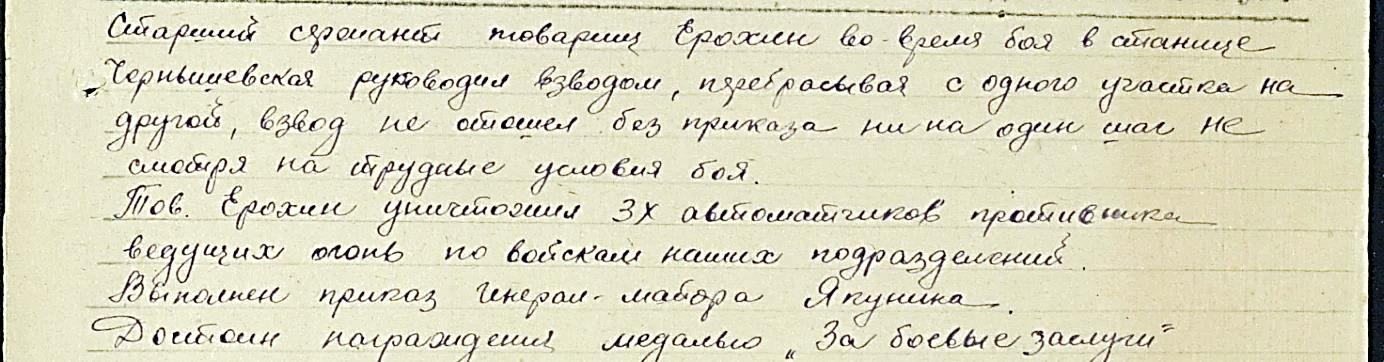 Старший сержант товарищ Ерохин во-время боя в станице
Чернышевская руководил взводом, перебрасывая с одного участка на
другой, взвод не отошел без приказа ни на один шаг не
смотря на трудные условия боя.
Тов. Ерохин уничтожил 3х автоматчиков противника
ведущих огонь по войскам наших подразделений.
Выполнен приказ генерал-майора Якунина.
Достоин награждения медалью „За боевые заслуги"